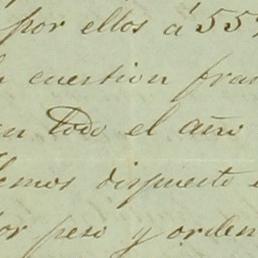 por ellos á 55
cuestion fran
en todo el año
hemos dispuesto
por peso y orden